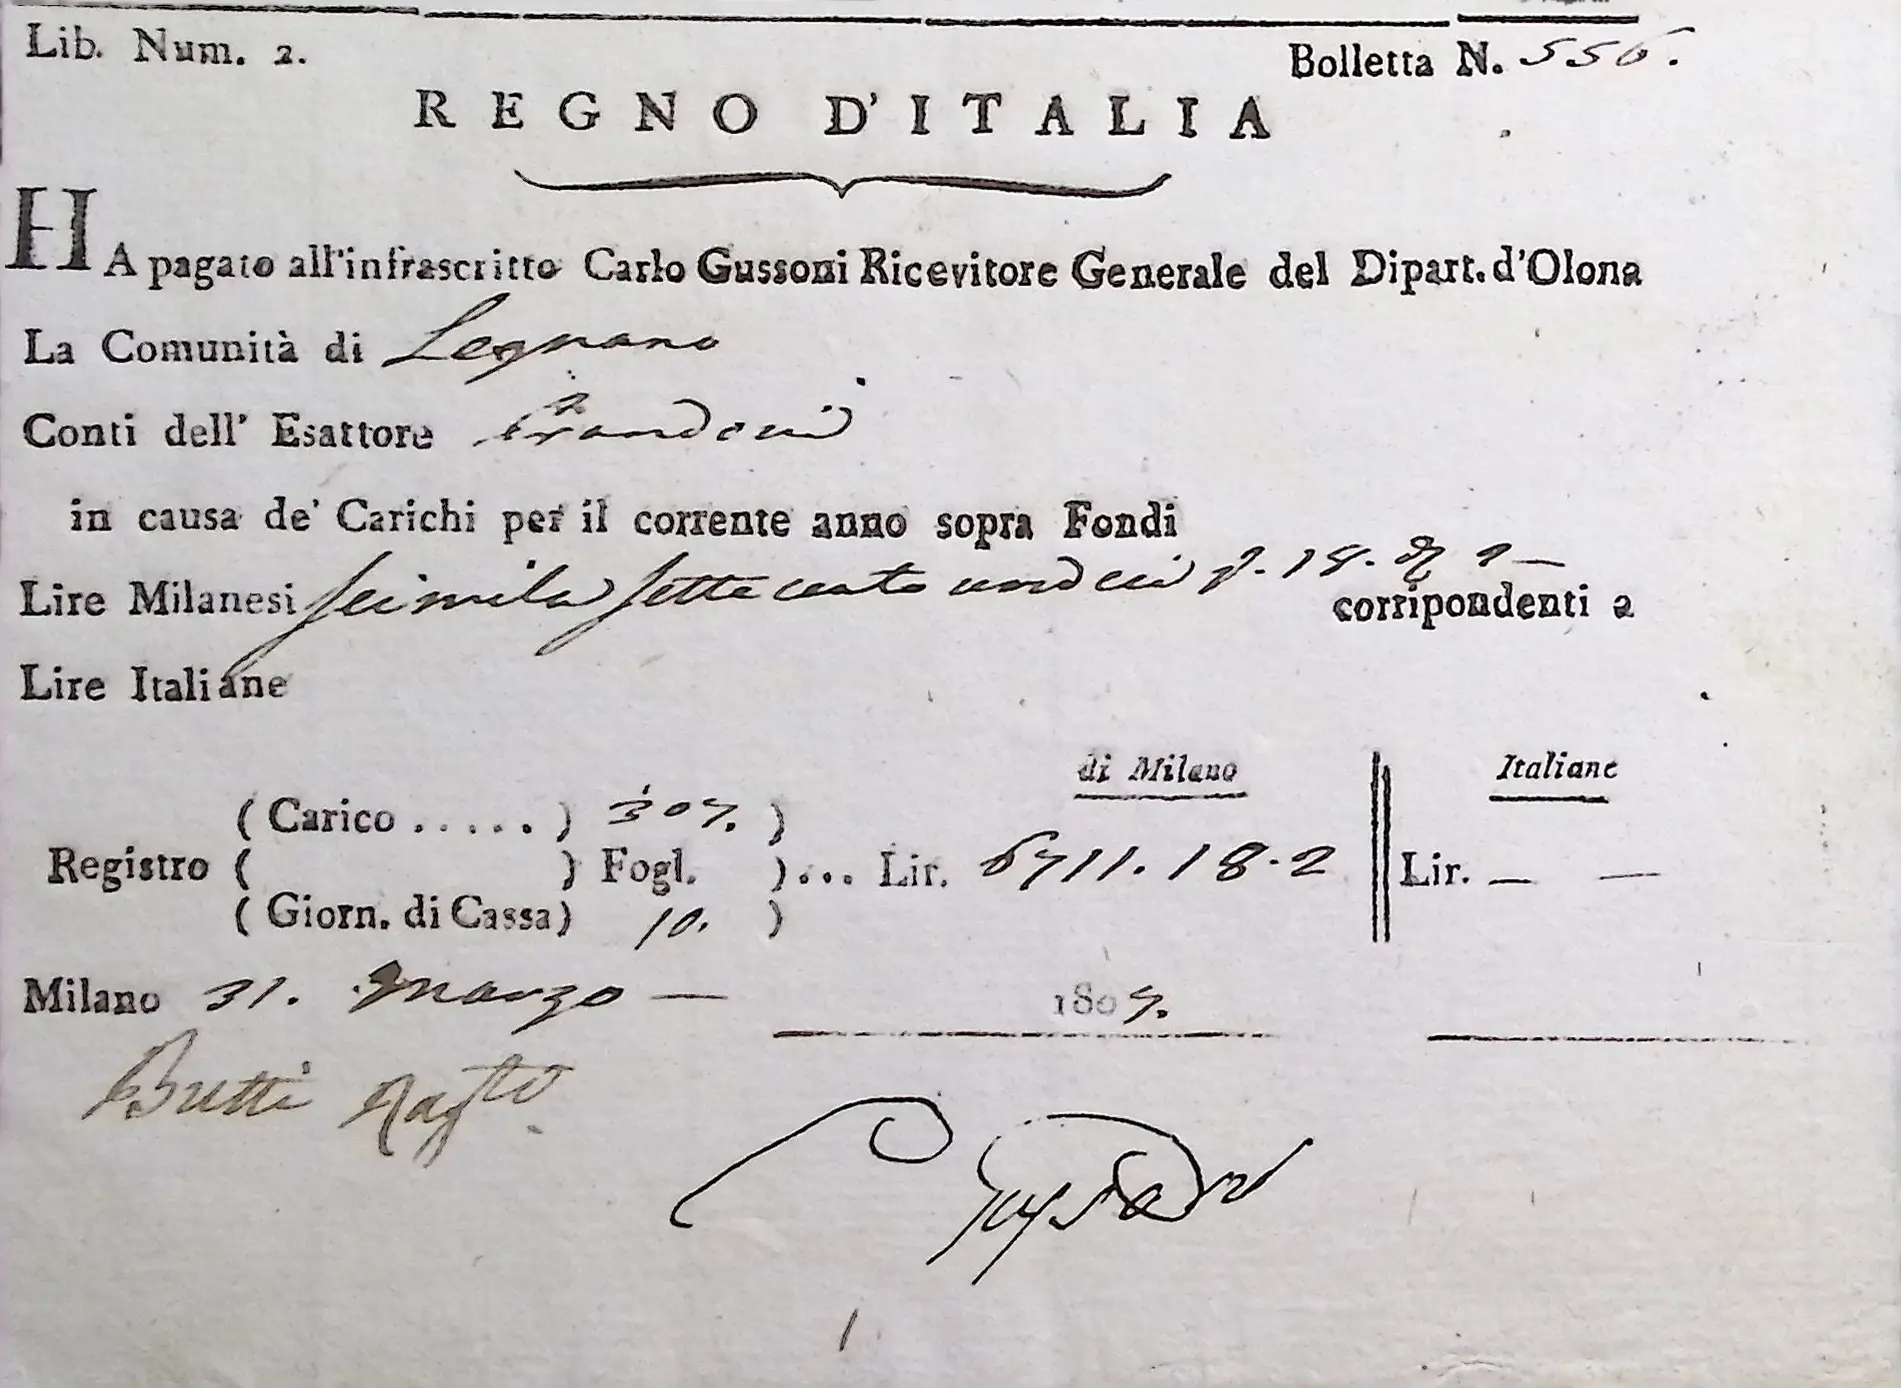 Lib. Num. 2.
Bolletta N. 556.
REGNO D'ITALIA
HA pagato all'infrascritto Carlo Gussoni Ricevitore Generale del Dipart. d'Olona
La Comunità di Legnano
Conti dell' Esattore
in causa de' Carichi per il corrente anno sopra Fondi
Lire Milanesi seimila settecento undeci s. 18. d 2 —
corripondenti a
Lire Italiane
di Milano Italiane
( Carico ..... ) 307. )
Registro ( ) Fogl. )... Lir. 6711.18.2 Lir. — —
( Giorn. di Cassa) 10. )
Milano 31. Marzo — 1807.
Butti Rag.to
Gussoni